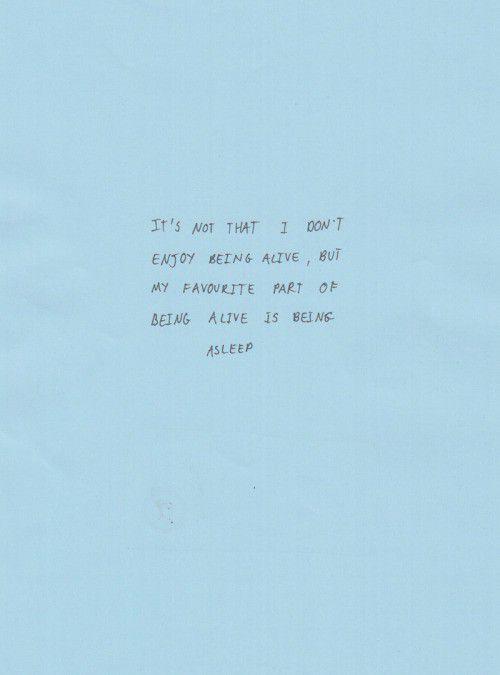 IT'S NOT THAT I DON'T
ENJOY BEING ALIVE, BUT
MY FAVOURITE PART OF
BEING ALIVE IS BEING
ASLEEP